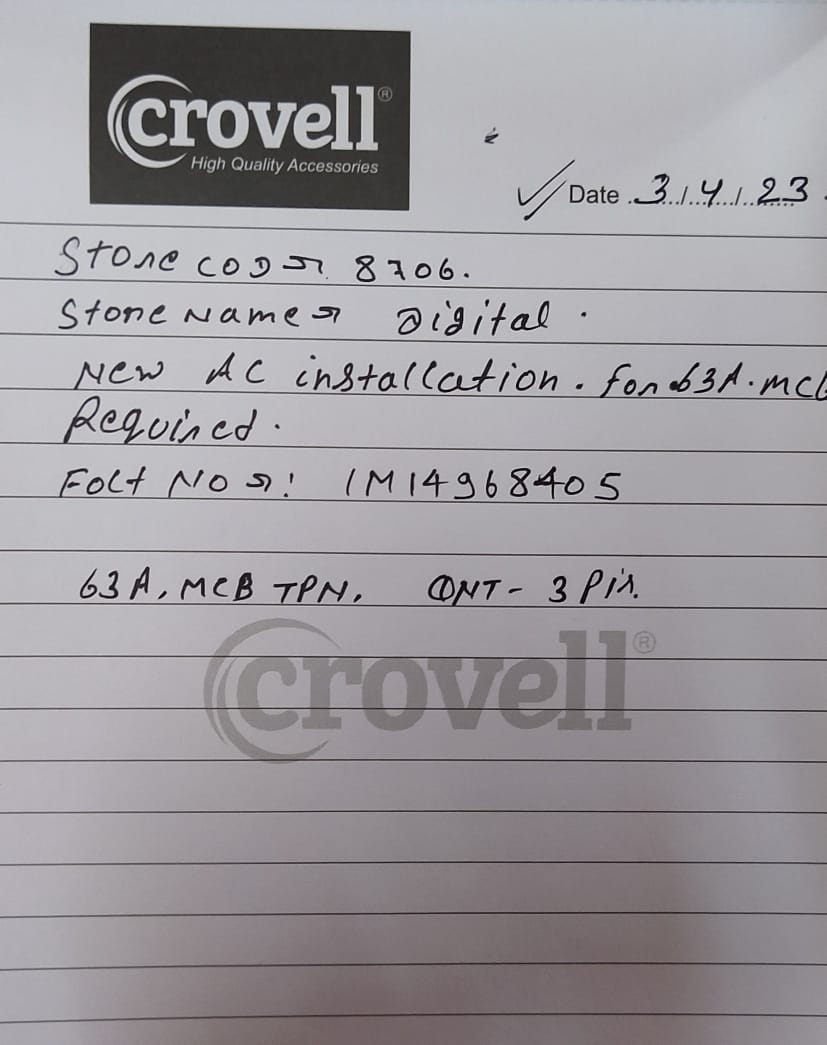 crovell®
High Quality Accessories
Date 3/4/23
Store CODE 8706.
Store Name Digital.
New AC installation. for 63A. MCB
Required.
Folt No: IM14968405
63A, MCB TPN. QNT- 3 Pis.
crovell®